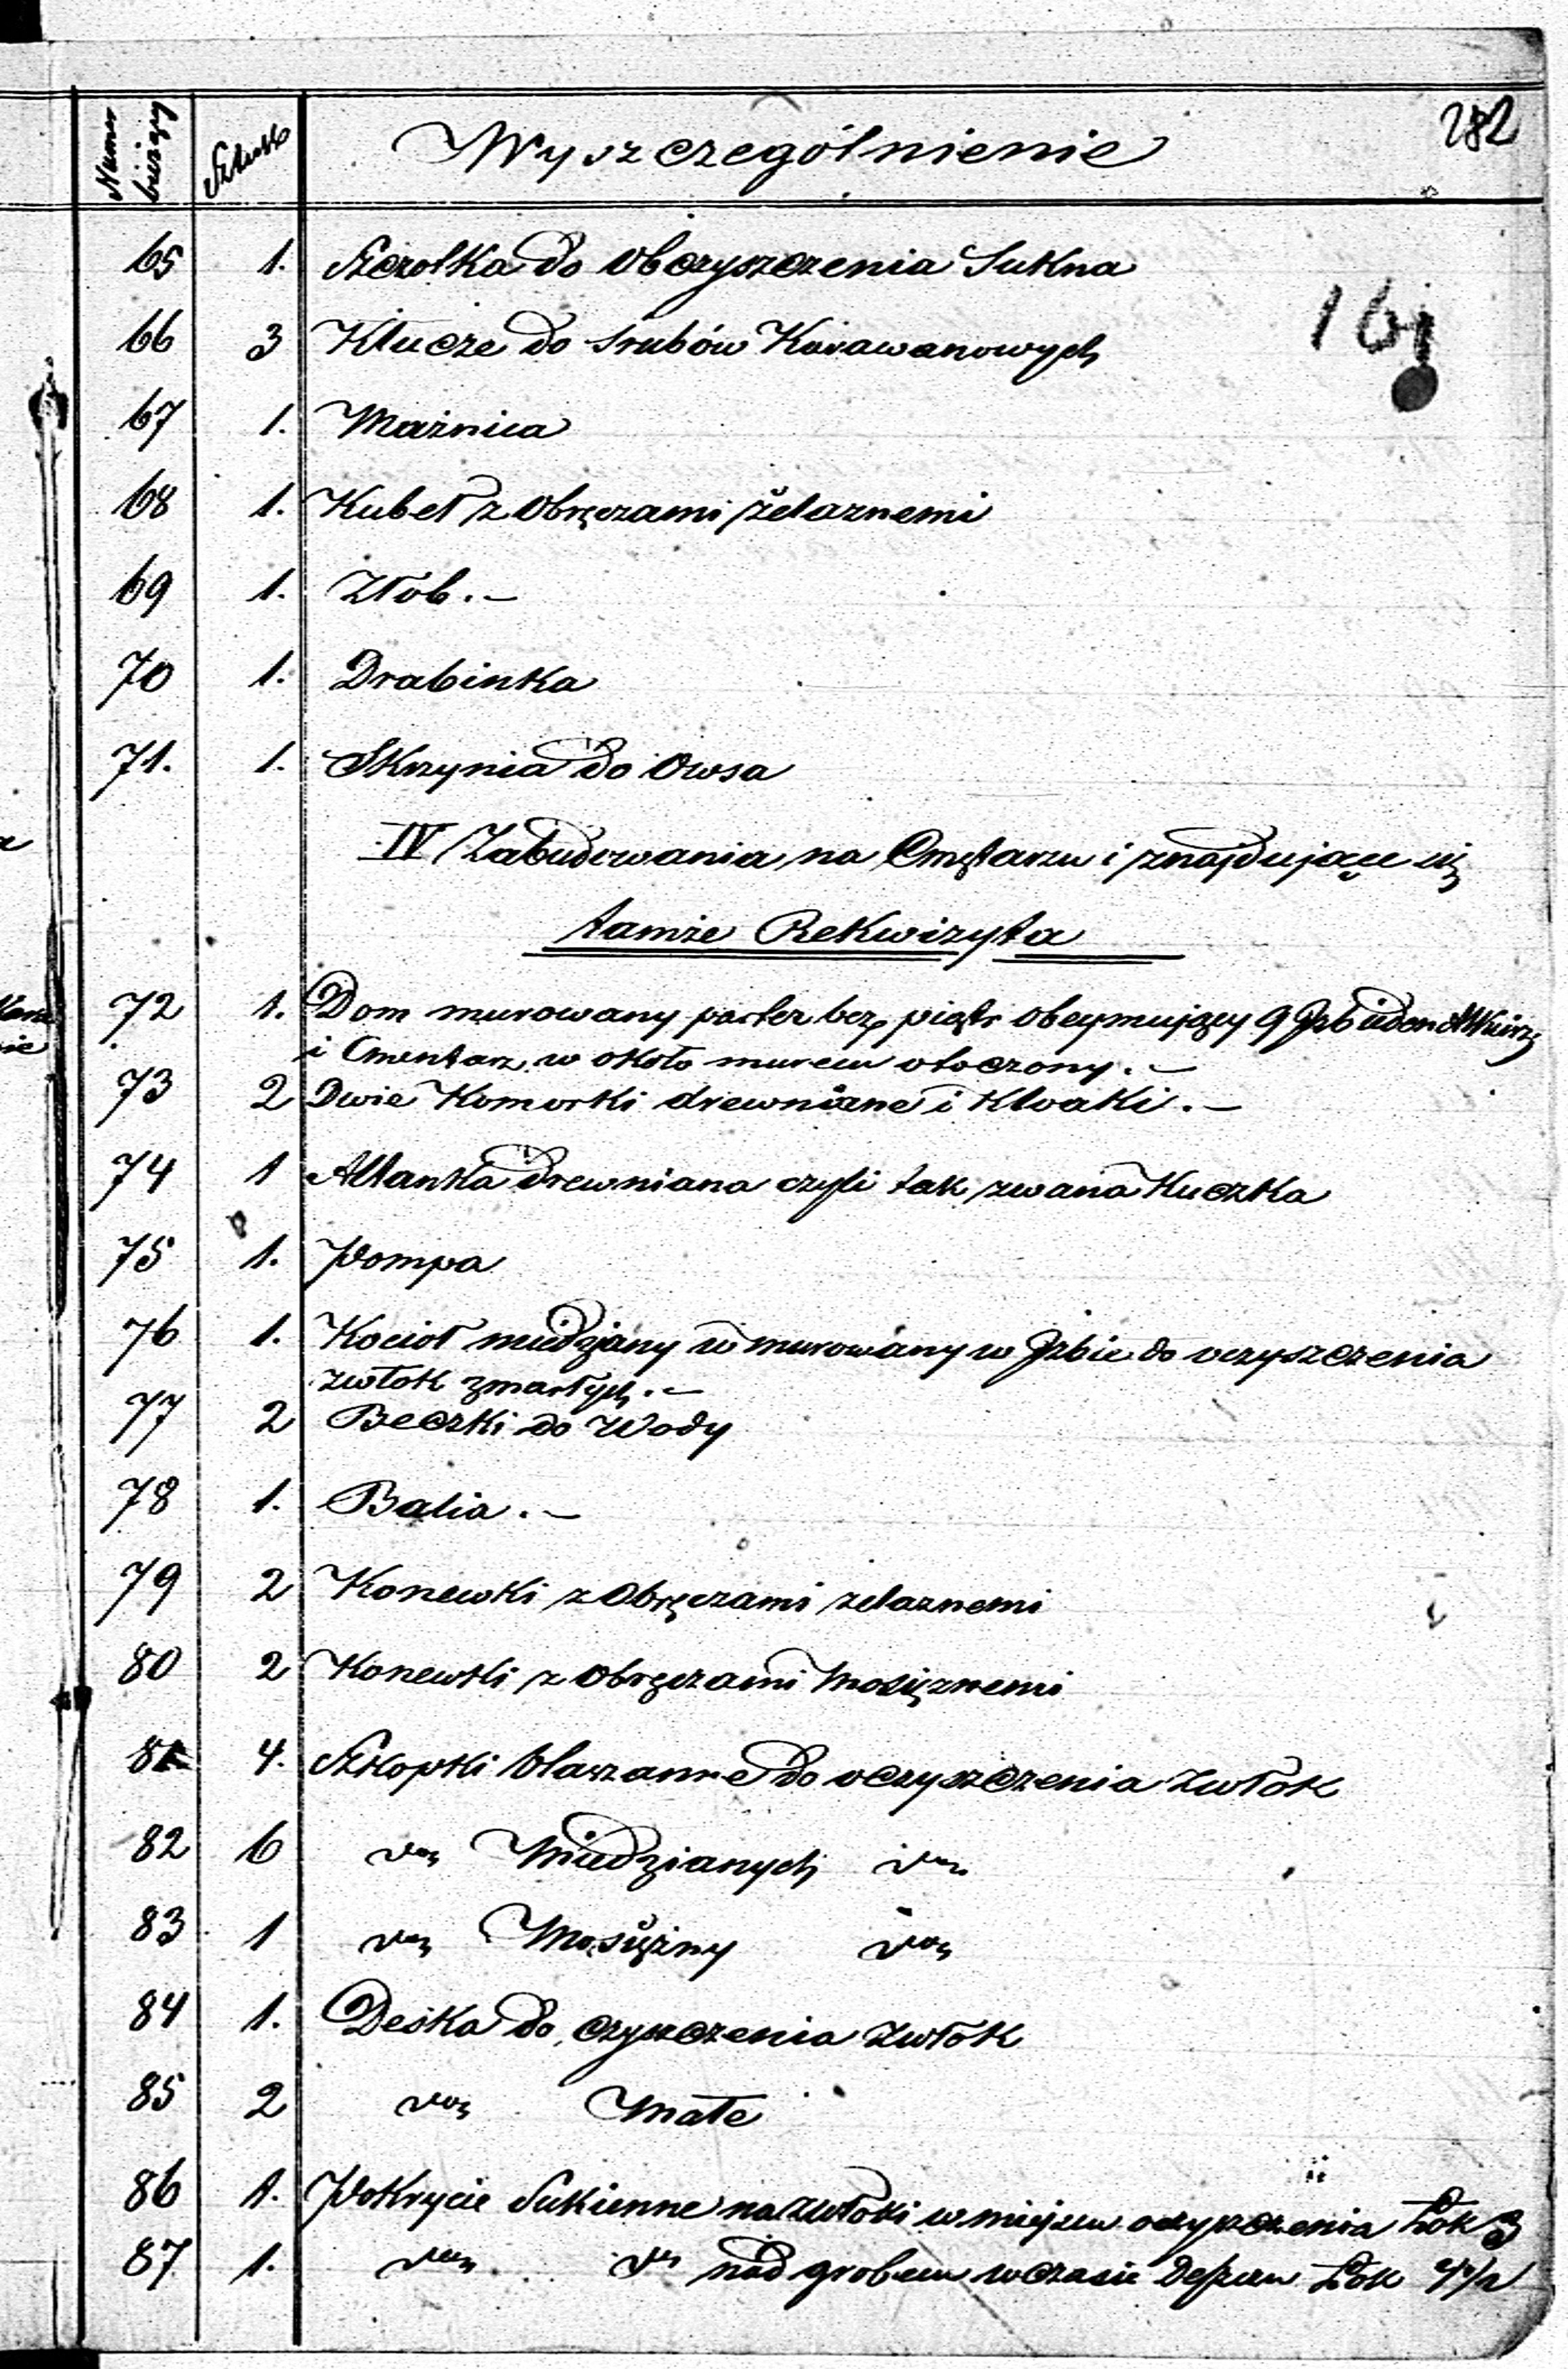 Numer bieżący Sztuk Wyszczególnienie 282
65 1. Szczotka do obczyszczenia Sukna
161
66 3 Klucze do srubów Karawanowych
67 1. Maźnica
68 1. Kubeł z Obręczami żelaznemi
69 1. Złób.–
70 1. Drabinka
71. 1. Skrzynia do Owsa
IV Zabudowania na Cmętarzu i znajdujące się
tamże Rekwizyta
72 1. Dom murowany parter bez piętr obeymujący 9 Izb jeden
i Cmentarz w około murem otoczony.–
73 2 Dwie Komorki drewniane i Kloaki.–
74 1 Altanka drewniana czyli tak zwana Kuczka
75 1. Pompa
76 1. Kocioł miedziany w murowany w Izbie do oczyszczenia
zwłok zmarłych.–
77 2 Beczki do Wody
78 1. Balia.–
79 2 Konewki z Obręczami zelaznemi
80 2 Konewki z Obręczami Mosięznemi
81 4. Szkopki blaszanne do oczyszczenia zwłok
82 6 Miedzianych
83 1 Mosiężny
84 1. Deska do czyszczenia zwłok
85 2 Małe
86 1. Pokrycie Sukienne na zwłoki w miejscu oczyszczenia Łok 3
87 1. nad grobem w czasie Deszczu Łok